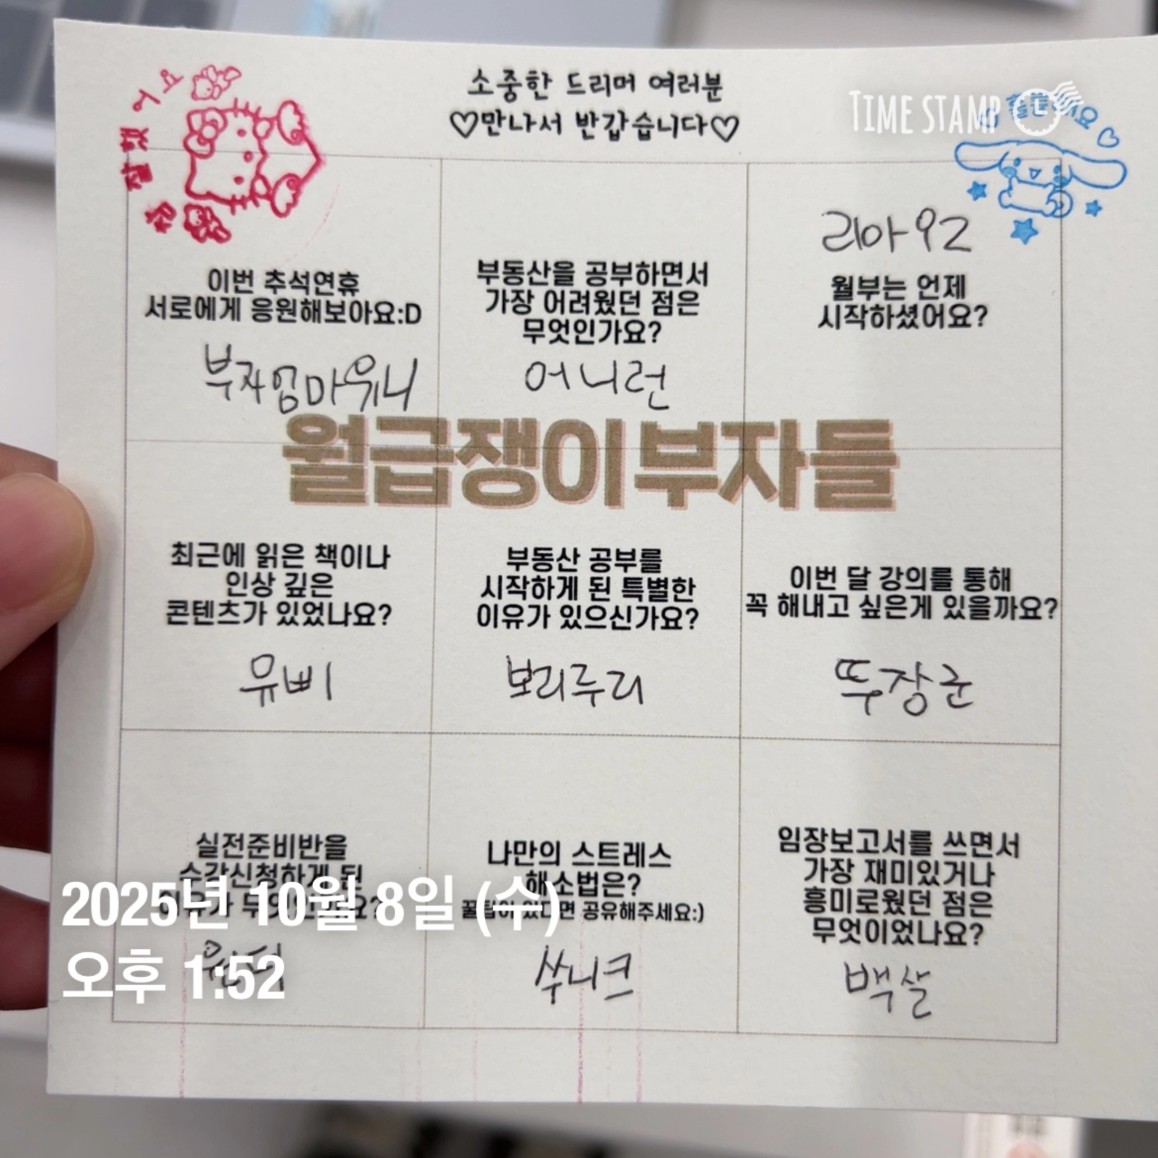 소중한 드리머 여러분
♡만나서 반갑습니다♡
TIME STAMP
참 잘했어요
이번 추석연휴
서로에게 응원해보아요:D
부자엄마유니
부동산을 공부하면서
가장 어려웠던 점은
무엇인가요?
어니런
리아92
월부는 언제
시작하셨어요?
월급쟁이부자들
최근에 읽은 책이나
인상 깊은
콘텐츠가 있었나요?
유삐
부동산 공부를
시작하게 된 특별한
이유가 있으신가요?
보리루리
이번 달 강의를 통해
꼭 해내고 싶은게 있을까요?
뚜장군
실전준비반을
수강신청하게 된
나만의 스트레스
해소법은?
있다면 공유해주세요:)
쑤니크
임장보고서를 쓰면서
가장 재미있거나
흥미로웠던 점은
무엇이었나요?
백살
2025년 10월 8일 (수)
오후 1:52